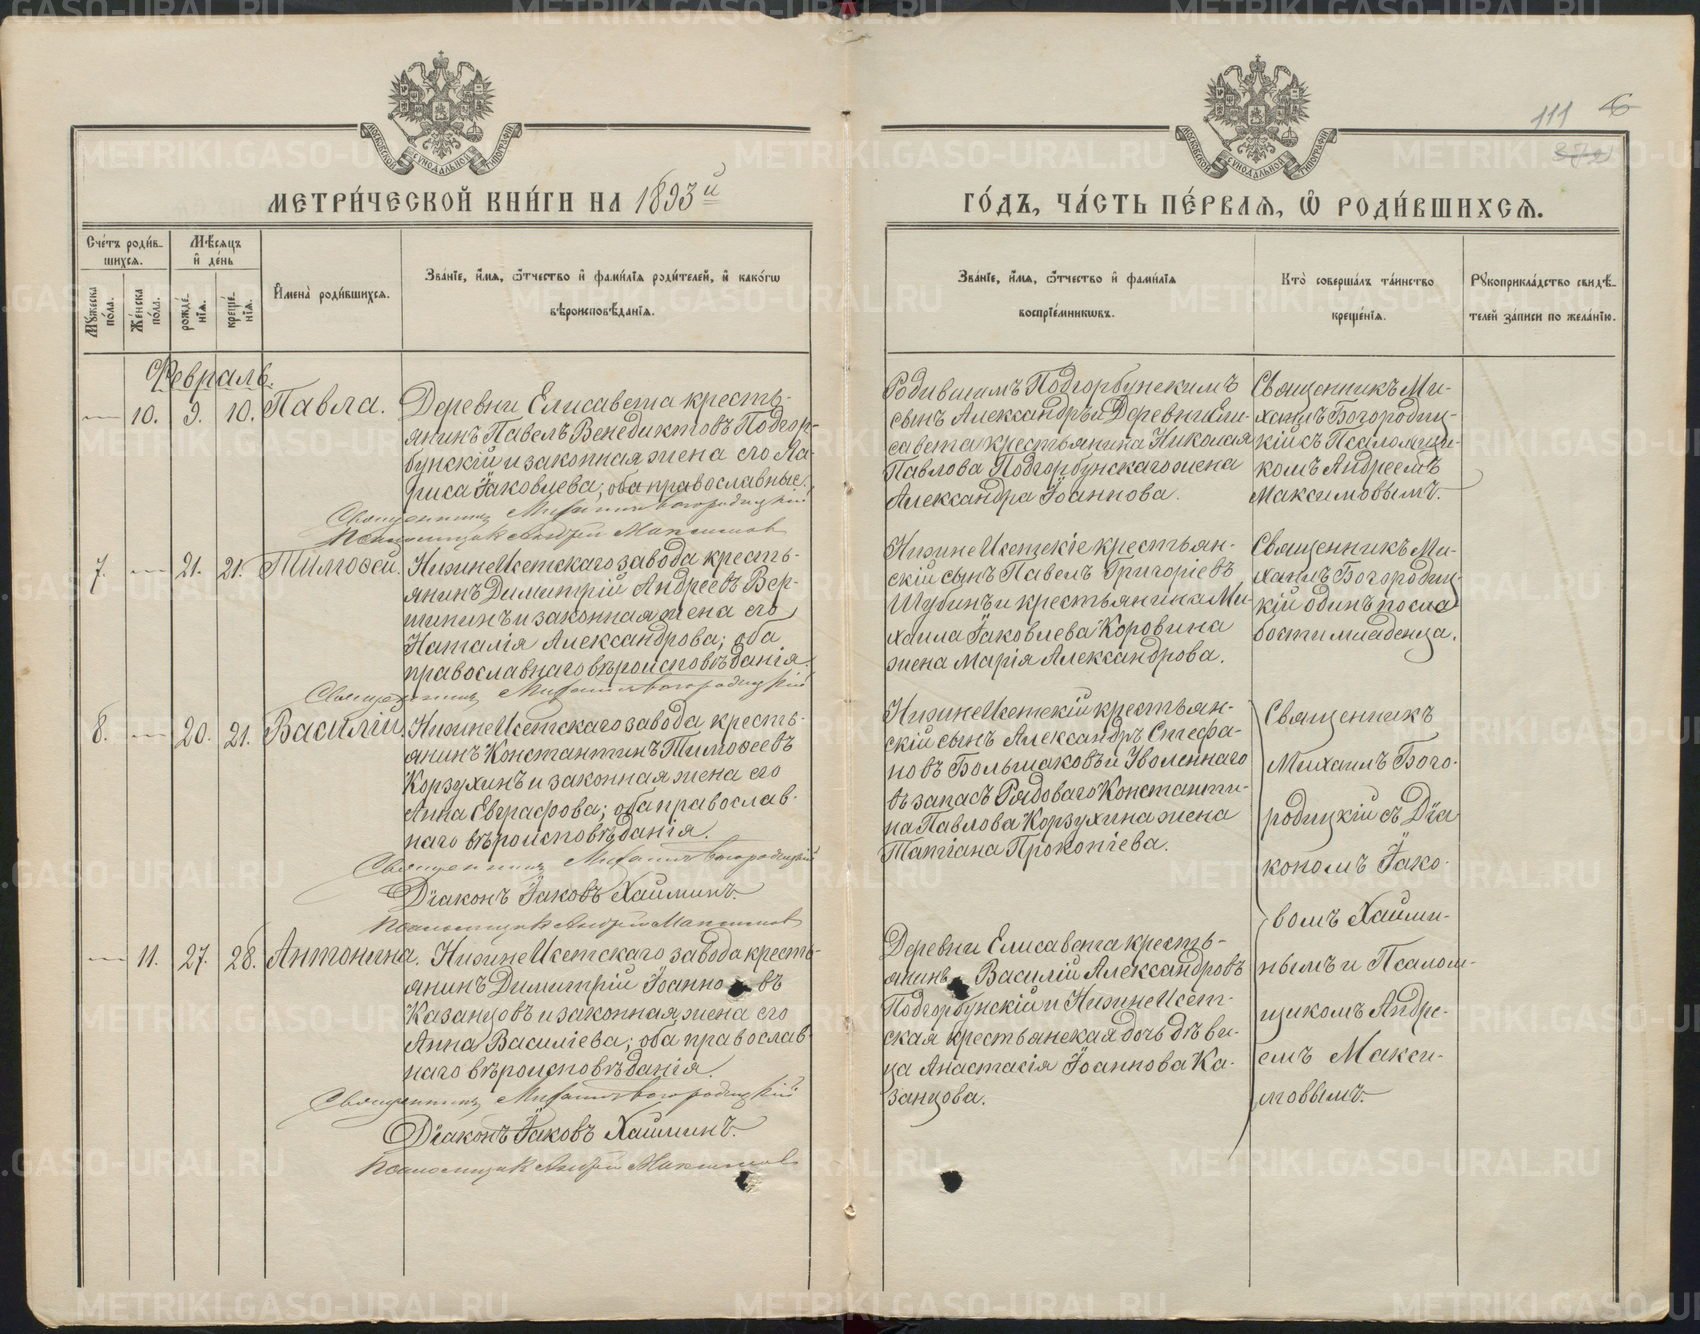 МЕТРИКИ.GASO-URAL.RU
111
МОСКОВСКОЙ СѴНОДАЛЬНОЙ ТИПОГРАФІИ
МЕТРИ́ЧЕСКОЙ КНИ́ГИ НА 1893й
ГО́ДЪ, ЧА́СТЬ ПЕ́РВАЯ, Ѽ РОДИ́ВШИХСЯ.
Сче́тъ роди́в-
шихся.
Мꙋ́жеска по́ла.
Же́нска по́ла.
Мѣ́сяцъ и де́нь
рожде́-
нія.
креще́-
нія.
И́мена роди́вшихся.
Зва́ніе, и́мя, ѻ҆́тчество и фами́лія роди́телей, и како́гѡ
вѣроисповѣ́данія.
Зва́ніе, и́мя, ѻ҆́тчество и фами́лія
воспріе́мникѡвъ.
Кто̀ соверша́лъ та́инство
креще́нія.
Рꙋкоприкла́дство свидѣ́-
телей за́писи по жела́нію.
Февраль.
— 10. 9. 10. Павла.
Деревни Елисавета кресть-
янинъ Павелъ Венедиктовъ Подгор-
бунскій и законная жена его Ла-
риса Іаковлева; оба православные.
Священникъ Михаилъ Богородицкій
Псаломщикъ Андрей Максимов
Родившимъ Подгорбунскимъ
сынъ Александръ и Деревни Ели-
савета крестьянина Николая
Павлова Подгорбунскаго жена
Александра Іоаннова.
Священникъ Ми-
хаилъ Богородиц-
кій съ Псаломщи-
комъ Андреемъ
Максимовымъ.
7. — 21. 21. Тимоѳей.
НижнеИсетскаго завода кресть-
янинъ Димитрій Андреевъ Вер-
шининъ и законная жена его
Наталія Александрова; оба
православнаго вѣроисповѣданія.
Священникъ Михаилъ Богородицкій
НижнеИсетскіе крестьян-
скій сынъ Павелъ Григоріевъ
Шубинъ и крестьянина Ми-
хаила Іаковлева Коровина
жена Марія Александрова.
Священникъ Ми-
хаилъ Богородиц-
кій одинъ по сла
бости младенца.
8. — 20. 21. Василій.
НижнеИсетскаго завода кресть-
янинъ Константинъ Тимоѳеевъ
Корзухинъ и законная жена его
Анна Евграфова; оба православ-
наго вѣроисповѣданія.
Священникъ Михаилъ Богородицкій
Діаконъ Іаковъ Хайминъ.
Псаломщикъ Андрей Максимов
НижнеИсетскій крестьян-
скій сынъ Александръ Стефа-
новъ Большаковъ и Уволеннаго
въ запасъ Рядоваго Константи-
на Павлова Корзухина жена
Татіана Прокопіева.
Священникъ
Михаилъ Бого-
родицкій съ Діа
кономъ Іако-
вомъ Хайми-
нымъ и Псалом-
щикомъ Андре-
емъ Макси-
мовымъ.
— 11. 27. 28. Антонина.
НижнеИсетскаго завода кресть-
янинъ Димитрій Іоанновъ
Казанцовъ и законная жена его
Анна Василіева; оба православ-
наго вѣроисповѣданія.
Священникъ Михаилъ Богородицкій
Діаконъ Іаковъ Хайминъ.
Псаломщикъ Андрей Максимов
Деревни Елисавета кресть-
янинъ Василій Александровъ
Подгорбунскій и НижнеИсет-
ская крестьянская дочь дѣви-
ца Анастасія Іоаннова Ка-
занцова.